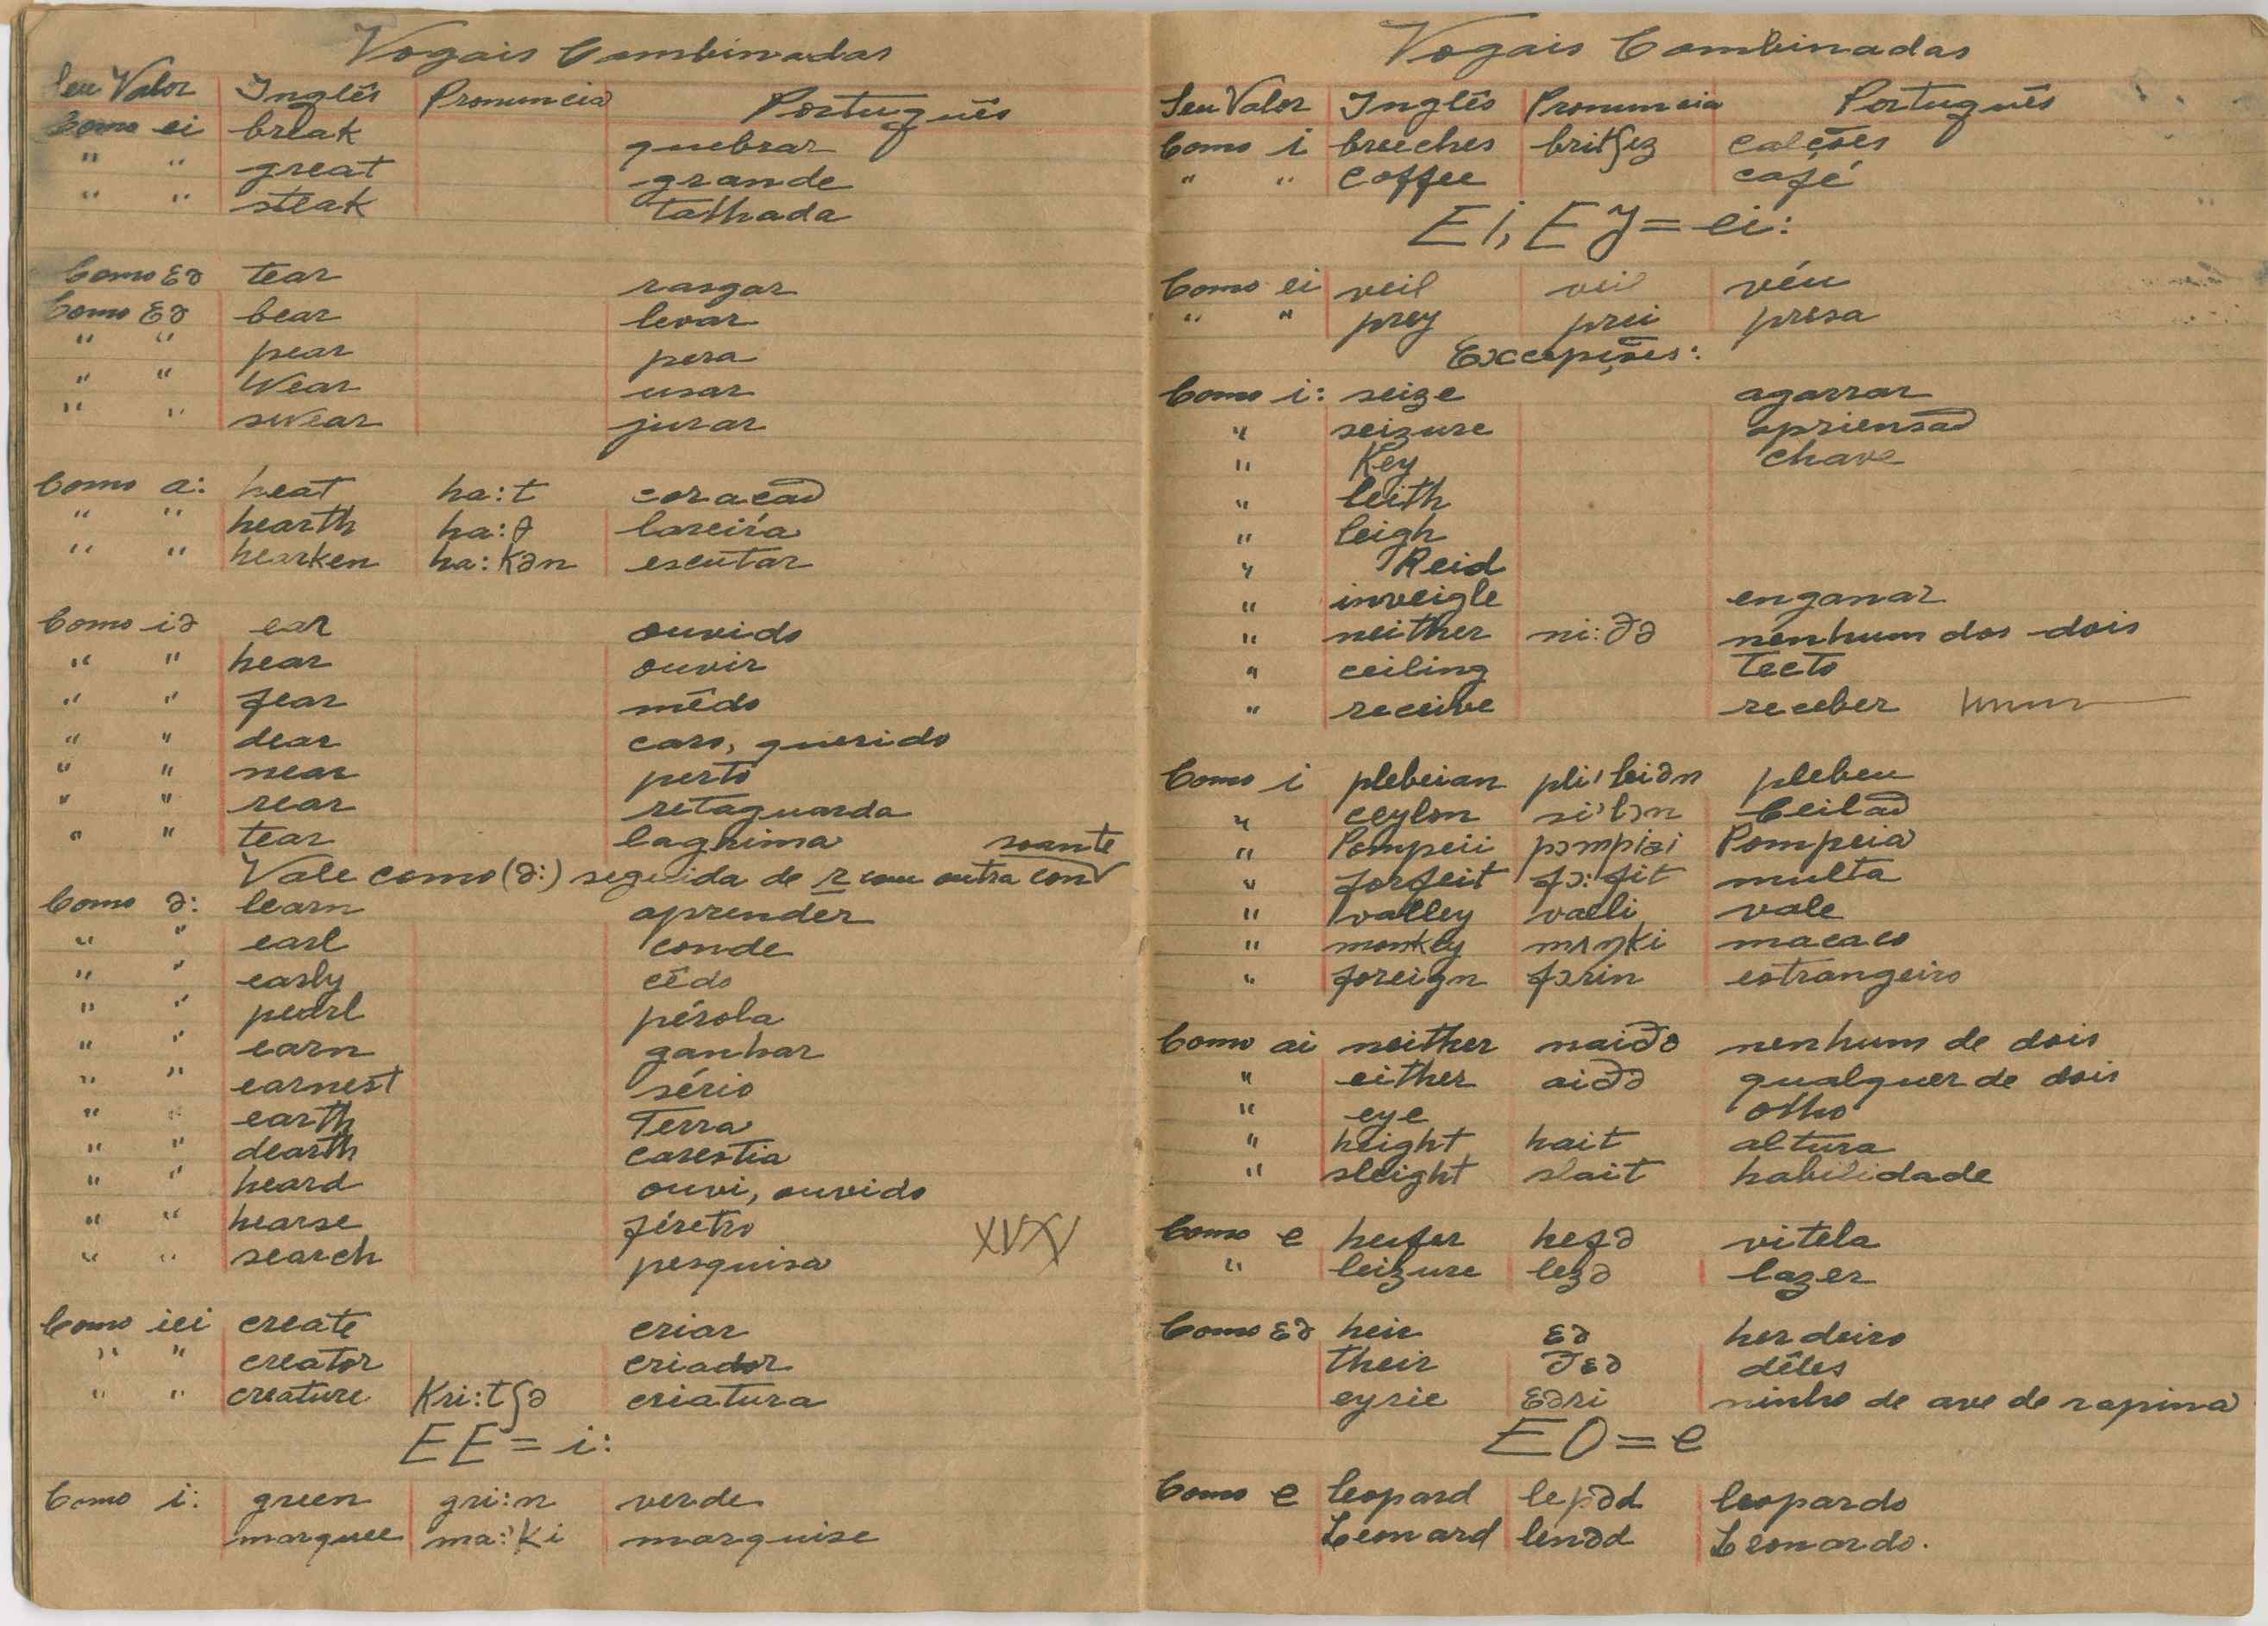 Vogais Combinadas
Seu Valor Inglês Pronuncia Português
Como ei break quebrar
" " great grande
" " steak talhada
Como ɛə tear rasgar
Como ɛə bear levar
" " pear pera
" " Wear usar
" " swear jurar
Como a: heat ha:t coracão
" " hearth ha:θ lareira
" " hearken ha:kən escutar
Como iə ear ouvido
" " hear ouvir
" " fear mêdo
" " dear caro, querido
" " near perto
" " rear retaguarda
" " tear lagrima soante
Vale como (ə:) seguida de r com outra con
Como ə: learn aprender
" " earl conde
" " early cêdo
" " pearl pérola
" " earn ganhar
" " earnest sério
" " earth Terra
" " dearth carestia
" " heard ouvi, ouvido
" " hearse féretro
" " search pesquisa
Como iei create criar
" " creator criador
" " creature kri:tʃə criatura
EE = i:
Como i: green gri:n verde
marquee ma:'ki marquise
Vogais Combinadas
Seu Valor Inglês Pronuncia Português
Como i breeches britʃez calções
" " coffee café
EI, EY = ei:
Como ei veil veil véu
" " prey prei presa
Excepções:
Como i: seize agarrar
" seizure apriensão
" Key chave
" leith
" leigh
" Reid
" inveigle enganar
" neither ni:ðə nenhum dos dois
" ceiling tecto
" receive receber
Como i plebeian pli'biən plebeu
" ceylon si'lɔn Ceilão
" Pompeii pɔmpiai Pompeia
" forfeit fɔ:fit multa
" valley vaeli vale
" monkey mʌŋki macaco
" foreign fɔrin estrangeiro
Como ai neither naiðə nenhum de dois
" either aiðə qualquer de dois
" eye olho
" height hait altura
" sleight slait habilidade
Como e heifer hefə vitela
" leizure lezə lazer
Como ɛə heir ɛə herdeiro
their ðɛə dêles
eyrie ɛəri ninho de ave de rapina
EO = e
Como e leopard lepəd leopardo
Leonard lenəd Leonardo.